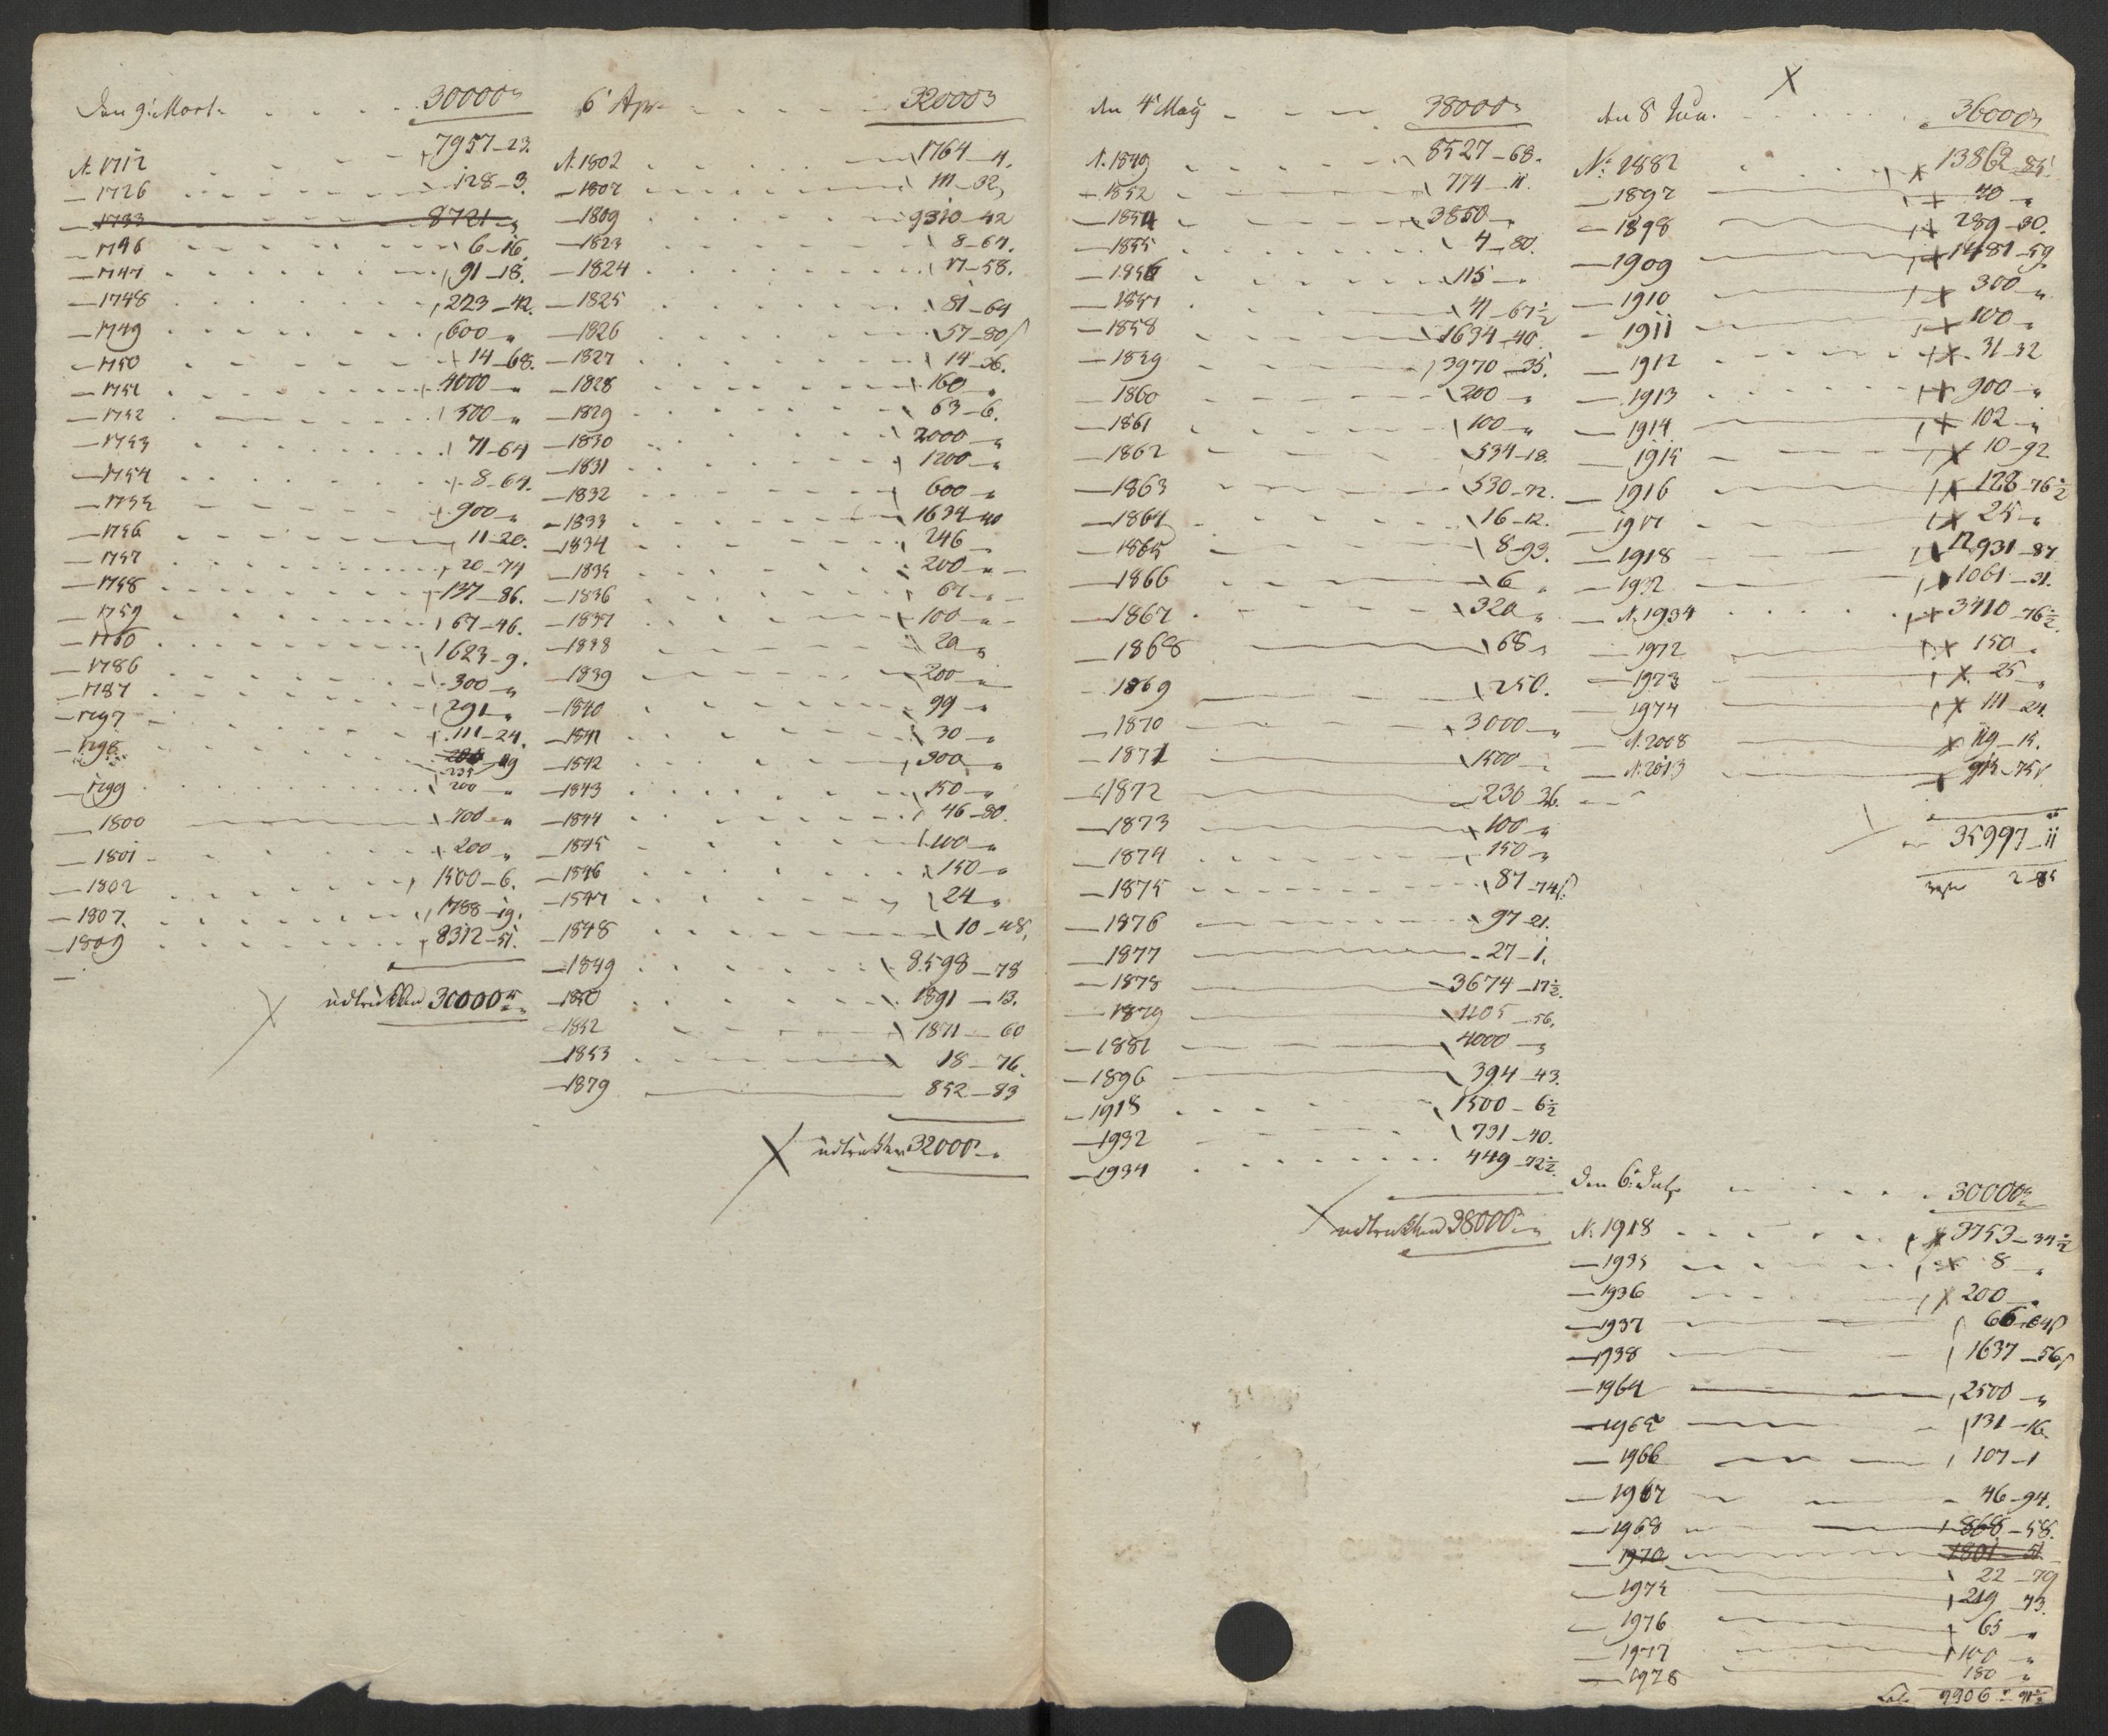 Den 9: Marts 30000
N. 1712 7957-23.
1726 128-3.
1733 8721
1746 6-16.
1747 91-18.
1748 223-42.
1749 600
1750 14-68.
1751 4000
1752 500
1753 71-64
1754 8-64.
1755 900
1756 11-20.
1757 20-74
1758 137-86.
1759 67-46.
1760 1623-9.
1786 300
1787 291
1797 111-24.
1798 235 49
1799 200
1800 700
1801 200
1802 1500-6.
1807. 1788-19.
1809 8312-51.
udtrukken 30000
6 Apr 32000
N. 1802 1764-4.
1807 111-32
1809 9310-42
1823 8-64.
1824 17-58.
1825 81-64
1826 57-80
1827 14-36.
1828 160
1829 63-6.
1830 2000
1831 1200
1832 600
1833 1634-40
1834 246
1835 200
1836 67
1837 100
1838 20
1839 200
1840 99
1841 30
1842 300
1843 150
1844 46-80.
1845 100
1846 150
1847 24
1848 10-48.
1849 8598-78
1850 1391-13.
1852 1871-60
1853 18-76.
1879 852-83
udtrukken 32000
den 4 May 38000
N. 1849 8527-68.
1852 774-11.
1854 3850
1855 4-80.
1856 115
1857 41-67½
1858 1634-40.
1859 3970-35.
1860 200
1861 100
1862 534-18.
1863 530-72.
1864 16-12.
1865 8-93.
1866 6
1867 320
1868 68
1869 250.
1870 3000
1871 1500
1872 236 36.
1873 100
1874 150
1875 87-74
1876 97-21.
1877 27-1.
1878 3674-17½.
1879 1105-56.
1881 4000
1896 394-43.
1918 1500-6½
1932 731-40.
1934 449-72½.
udtrukken 38000
X
den 8 Jun. 36000
N: 1882 13862-85
1897 40
1898 289-30.
1909 1481-59
1910 300
1911 100
1912 31-32
1913 900
1914 102
1915 10-92
1916 128-76½
1917 25
1918 12931-87
1932 1061-31.
N. 1934 3410-76½.
1972 150
1973 25
1974 111-24.
N. 2008 119-15.
N. 2013 915-75
35997-11
2-85
Den 6: July 30000
N. 1918 3753-34½
1935 8
1936 200
1937 66-64
1938 1637-56
1964 2500
1965 131-16
1966 107-1
1967 46-94.
1968 868-58.
1970 1801-51
22-79
1975 219-73.
1976 65
1977 100
1978 180
9906